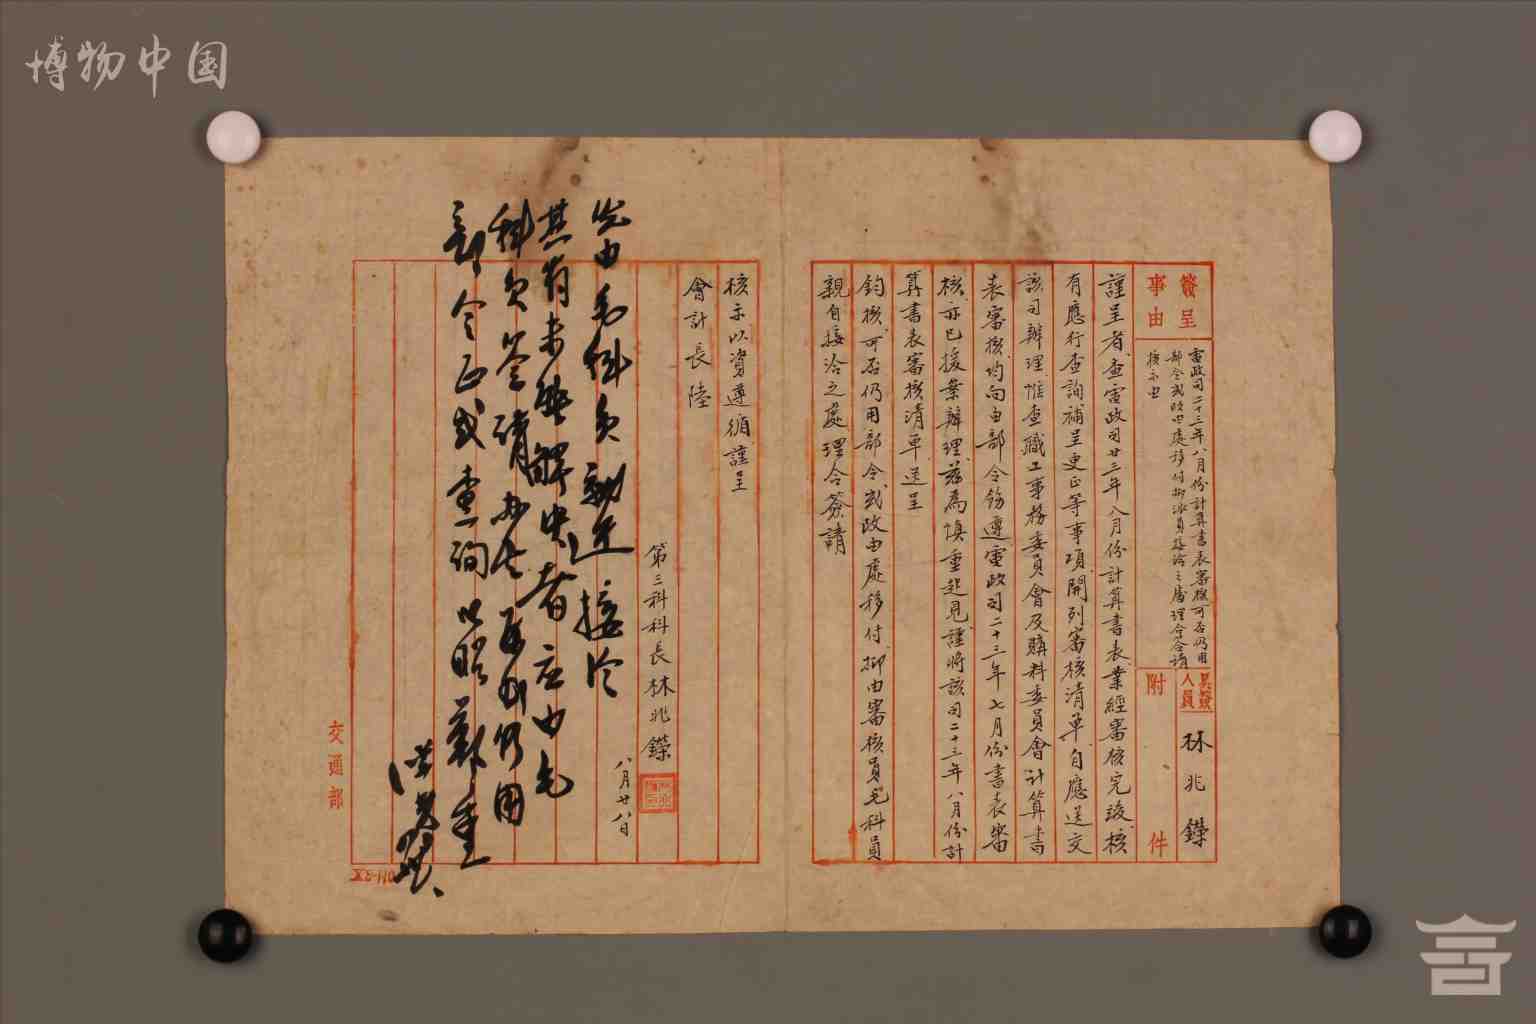 博物中国
簽呈
事由
電政司二十三年八月份計算書表審核可否仍用
部令或改由處移付抑派員接洽之處理合簽請
核示由
具簽呈
人員
林兆鑅
附件
謹呈者查電政司廿三年八月份計算書表業經審核完竣核
有應行查詢補呈更正等事項開列審核清單自應送交
該司辦理惟查職工事務委員會及購料委員會計算書
表審核均向由部令飭遵電政司二十三年七月份書表審
核亦已援案辦理茲為慎重起見謹將該司二十三年八月份計
算書表審核清單送呈
鈞核可否仍用部令或改由處移付抑由審核員毛科員
親自接洽之處理合簽請
核示以資遵循謹呈
會計長陸
第三科科長林兆鑅
八月廿八日
先由毛科員就近接洽
其有未能解決者应由毛
科員簽請办后再行仍用
部令正式查詢以昭鄭重
交通部